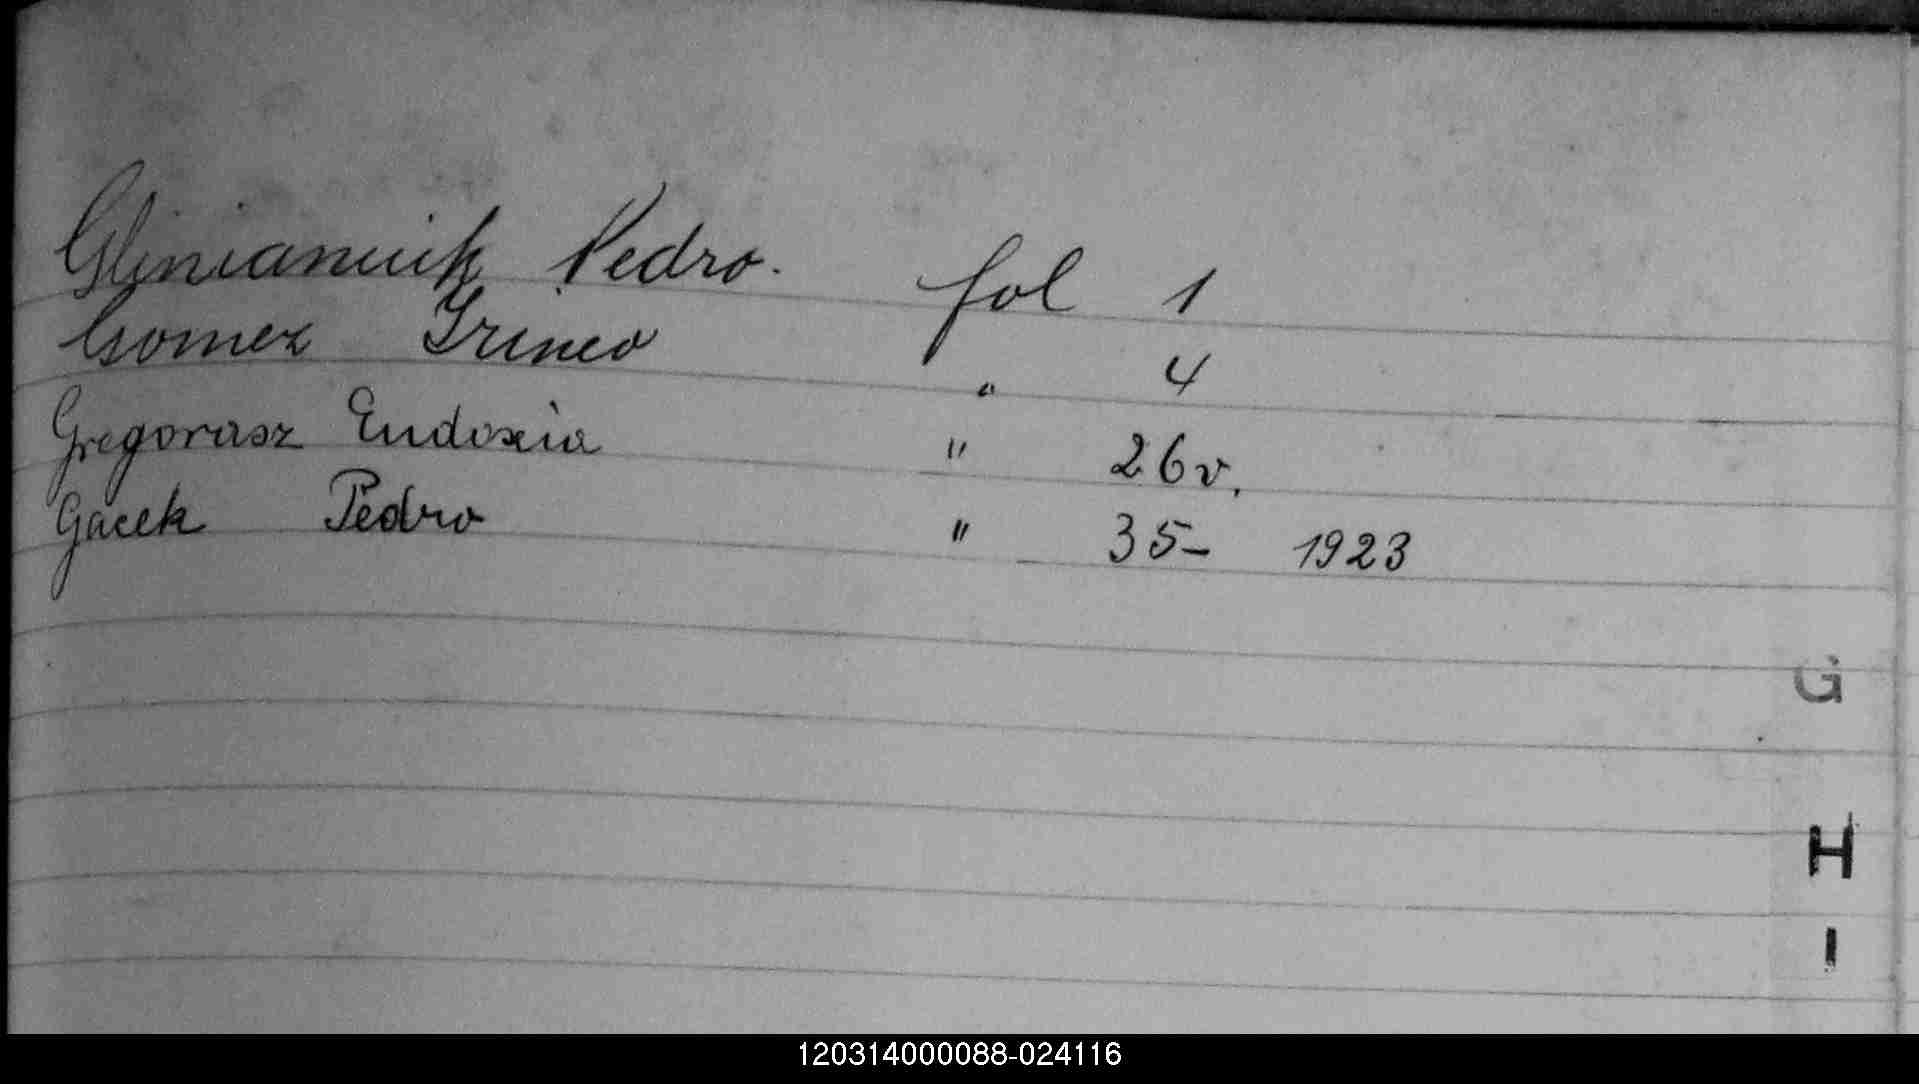 Glinianiuk Pedro. fol 1
Gomez Irineo " 4
Gregorasz Eudoxia " 26v.
Gacek Pedro " 35- 1923
G
H
I
120314000088-024116